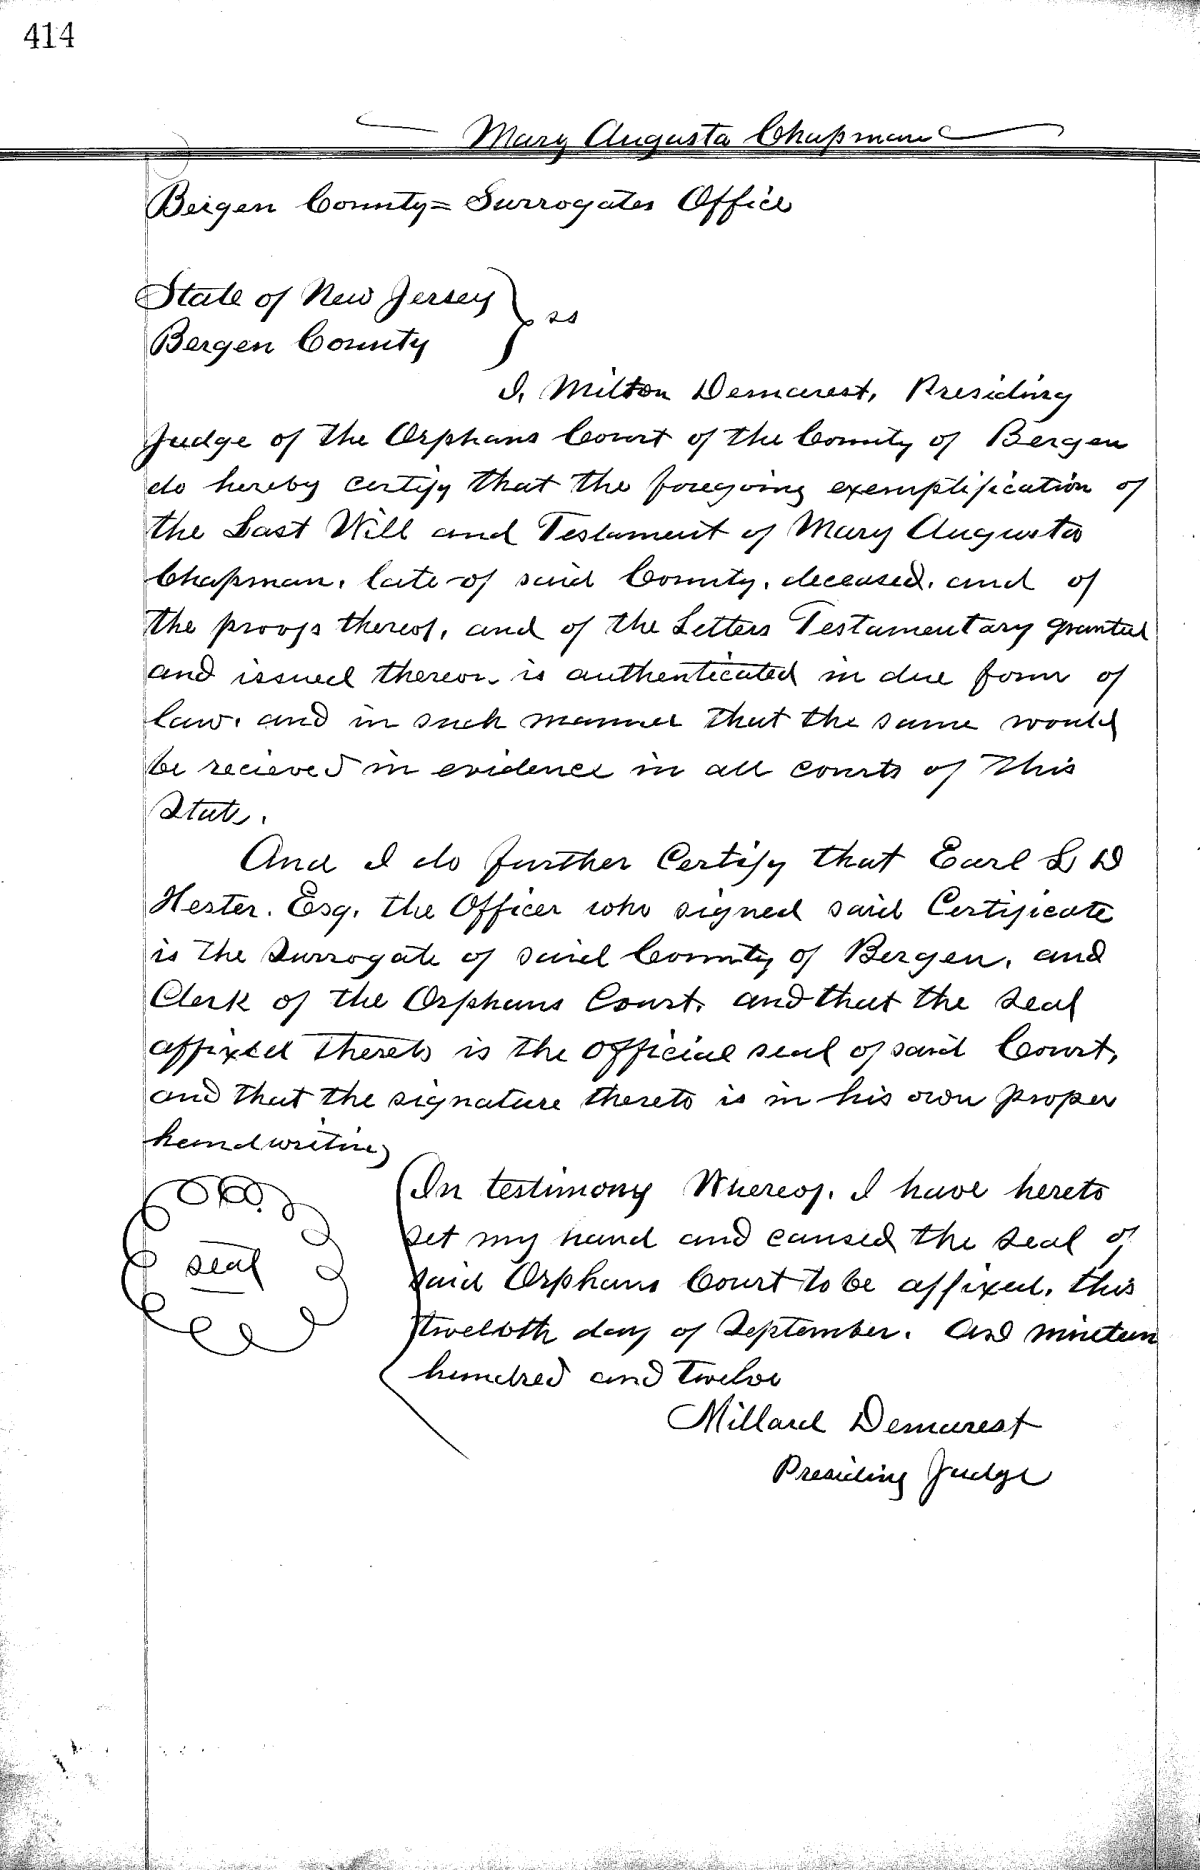 414
Mary Augusta Chapman
Bergen County = Surrogates Office
State of New Jersey
Bergen County } ss
I, Milton Demarest, Presiding
Judge of the Orphans Court of the County of Bergen
do hereby certify that the foregoing exemplification of
the Last Will and Testament of Mary Augusta
Chapman, late of said County, deceased, and of
the proofs thereof, and of the Letters Testamentary granted
and issued thereon is authenticated in due form of
law, and in such manner that the same would
be recieved in evidence in all courts of this
State.
And I do further Certify that Earl L D
Hester. Esq. the Officer who signed said Certificate
is the Surrogate of said County of Bergen, and
Clerk of the Orphans Court, and that the seal
affixed thereto is the official seal of said Court,
and that the signature thereto is in his own proper
handwriting
seal
In testimony Whereof, I have hereto
set my hand and caused the seal of
said Orphans Court to be affixed, this
day of September. And nineteen
hundred and twelve
Millard Demarest
Presiding Judge